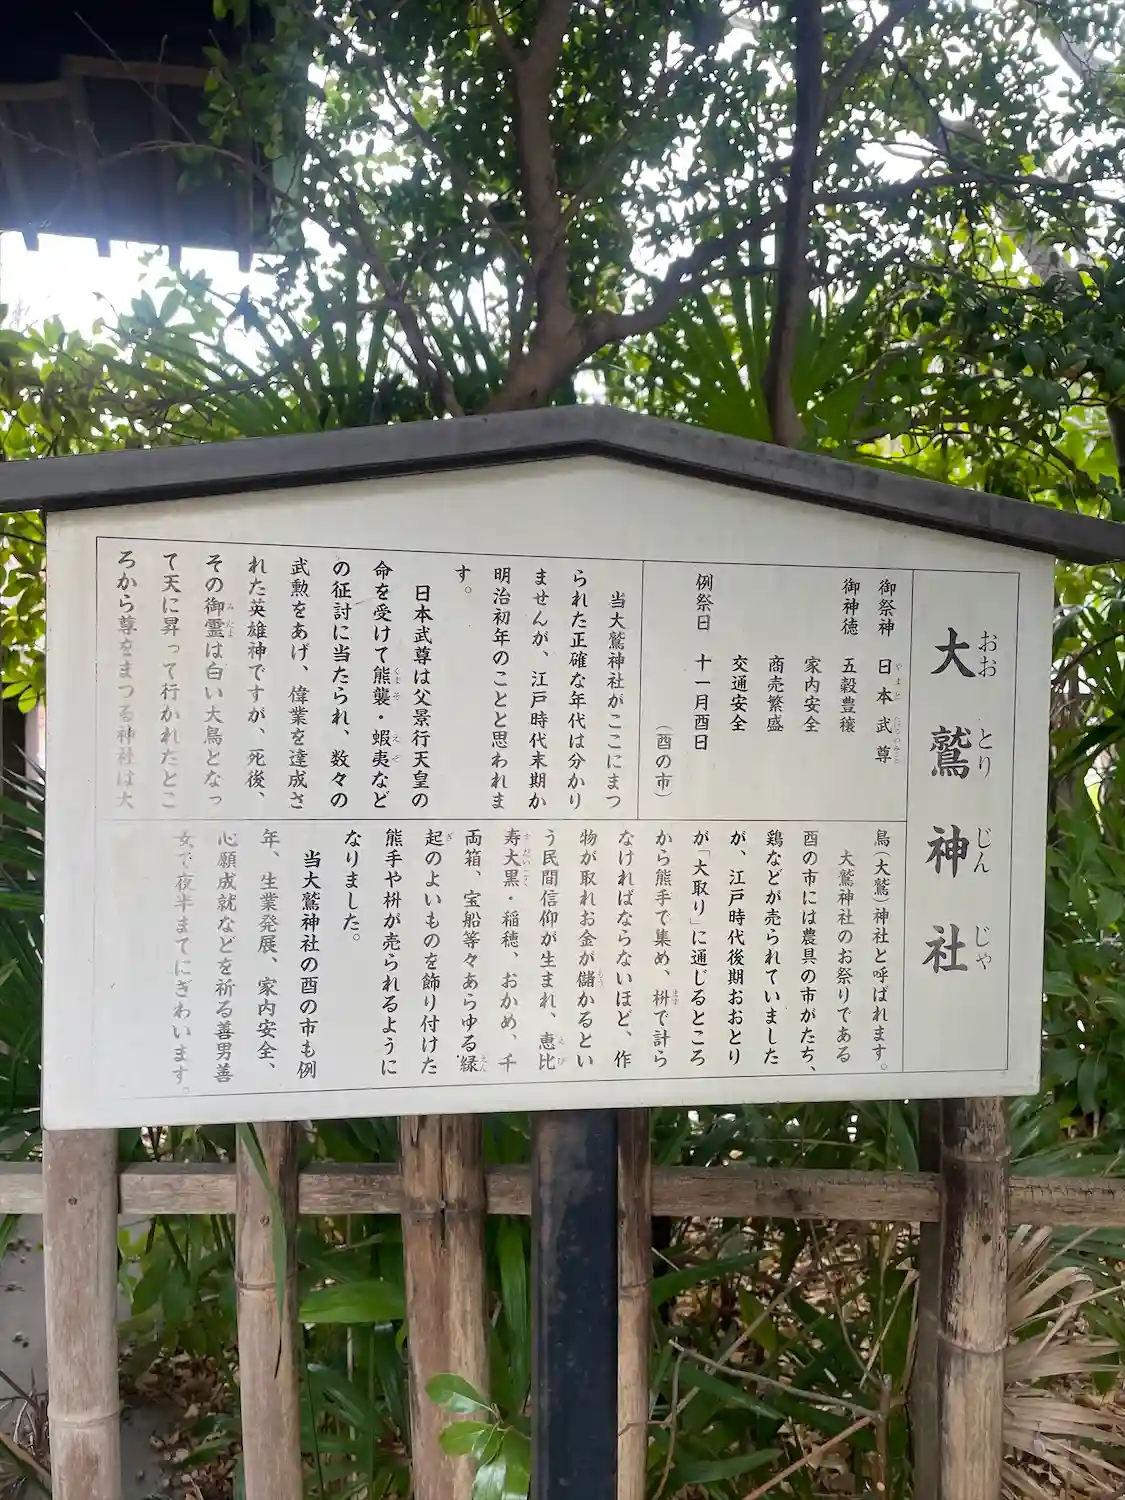 大鷲神社
おおとりじんじゃ
御祭神　日本武尊
やまとたけるのみこと
御神徳　五穀豊穣
家内安全
商売繁盛
交通安全
例祭日　十一月酉日
（酉の市）
当大鷲神社がここにまつ
られた正確な年代は分かり
ませんが、江戸時代末期か
明治初年のことと思われま
す。
日本武尊は父景行天皇の
命を受けて熊襲・蝦夷など
くまそ　えぞ
の征討に当たられ、数々の
武勲をあげ、偉業を達成さ
れた英雄神ですが、死後、
その御霊は白い大鳥となっ
みたま
て天に昇って行かれたとこ
ろから尊をまつる神社は大
鳥（大鷲）神社と呼ばれます。
大鷲神社のお祭りである
酉の市には農具の市がたち、
鶏などが売られていました
が、江戸時代後期おおとり
が「大取り」に通じるところ
から熊手で集め、枡で計ら
ます
なければならないほど、作
物が取れお金が儲かるとい
もう
う民間信仰が生まれ、恵比
えび
寿大黒・稲穂、おかめ、千
すだいこく
両箱、宝船等々あらゆる縁
えん
起のよいものを飾り付けた
ぎ
熊手や枡が売られるように
なりました。
当大鷲神社の酉の市も例
年、生業発展、家内安全、
心願成就などを祈る善男善
女で夜半までにぎわいます。